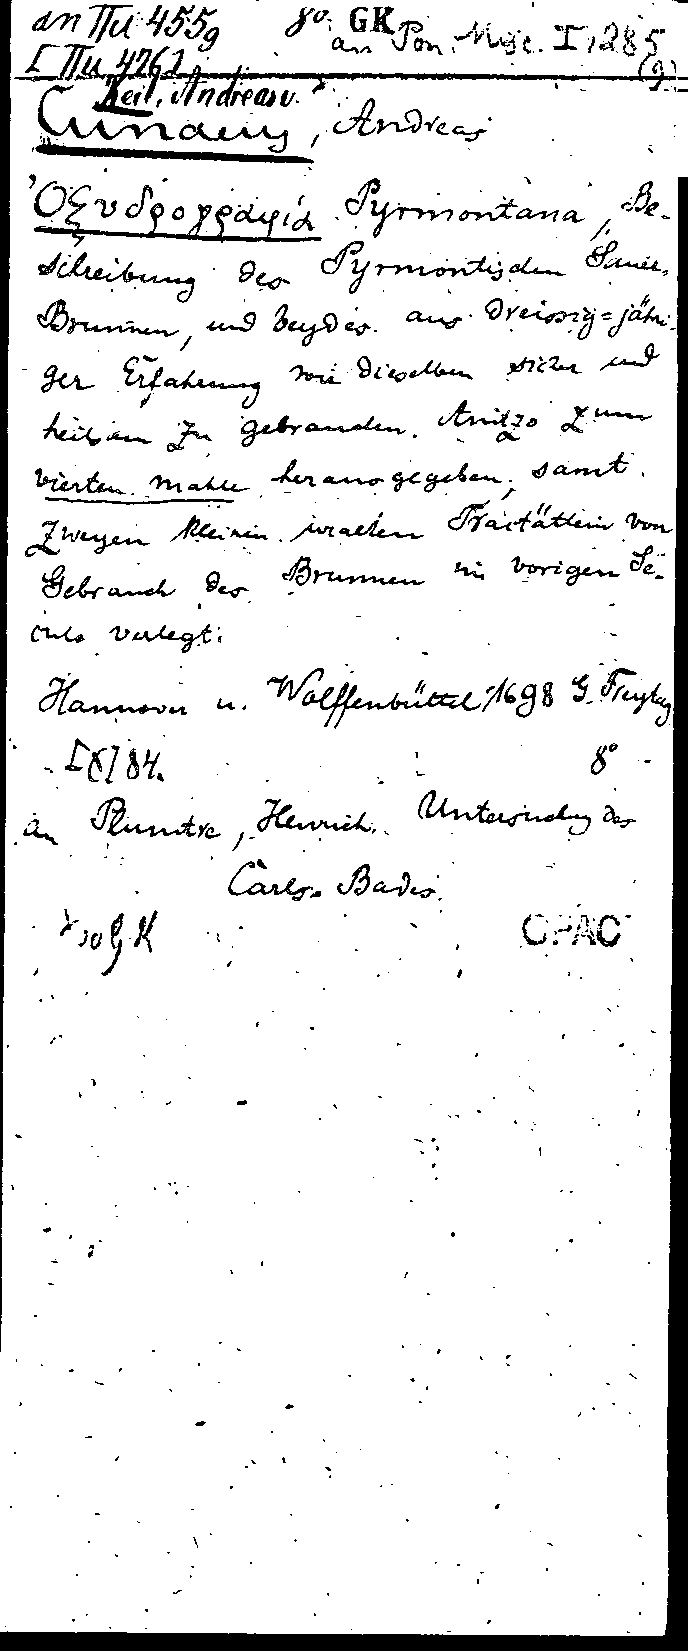 an IIu 455g 8° GK
an Pon. Misc. I, 285
[IIu 4262 (9)
Keil, Andreas v.
Cunaeus, Andreas
Ὀξυδρογραφία Pyrmontana, Be-
schreibung des Pyrmontischen Sauer-
Brunnen, und beydes aus dreissig=jähri-
ger Erfahrung wie dieselben sicher und
heilsam zu gebrauchen. Anitzo zum
vierten mahle herausgegeben, samt
zweyen kleinen uralten Tractätlein von
Gebrauch des Brunnen im vorigen Se-
culo verlegt.
Hannover u. Wolffenbüttel 1698 G. Freytag
[8] 84. 8°
an Plumtre, Henrich. Untersuchung des
Carls-Bades.
GK OPAC